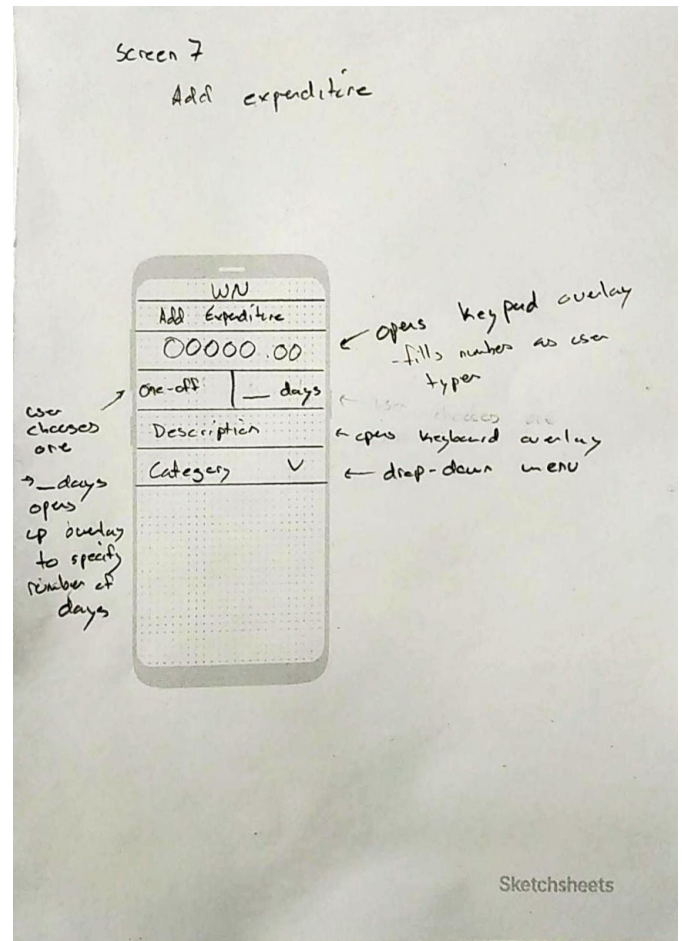 Screen 7
Add expenditure
WN
Add Expenditure
00000.00
One-off | __ days
Description
Category ∨
← opens keypad overlay
- fills number as user
types
← user chooses one
← opens keyboard overlay
← drop-down menu
user
chooses
one
→ __ days
opens
up overlay
to specify
number of
days
Sketchsheets